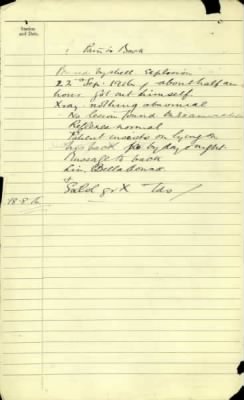 Station
and Date.
: Pain in Back
Buried by shell explosion
22nd Sep. 1916 for about half an
hour got out himself.
Xray nothing abnormal
No lesion found on examination
Reflexes normal
Patient insists on lying on
his back by day & night.
Massage to back
Lin. Belladonnae
gr X Tds
18.8.